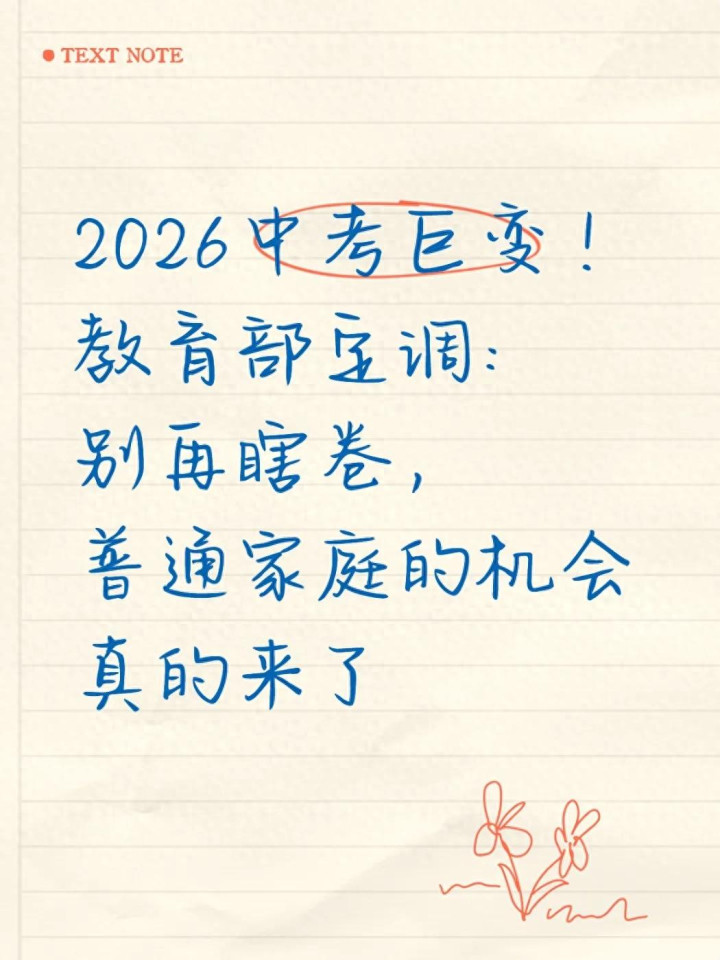 TEXT NOTE
2026中考巨变！
教育部定调：
别再瞎卷，
普通家庭的机会
真的来了